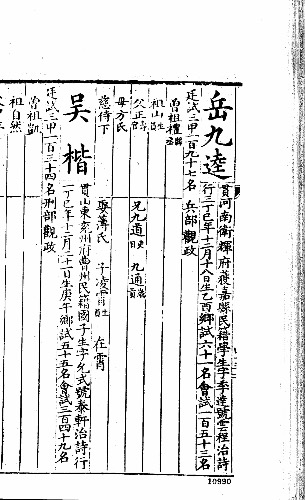 岳九逵
貫河南衛輝府獲嘉縣民籍學生字季達號雲程治詩
行三丁巳年十二月十八日生乙酉鄉試六十一名會試一百五十三名
廷試三甲一百九十七名 兵部觀政
曾祖禮
祖山
父正
母方氏
慈侍下
兄九道 九通
娶薄氏 子凌霄 在霄
吳楷
貫山東兗州府曹州民籍國子生字允式號泰軒治詩行
一丁巳年十二月二十一日生庚午鄉試五十五名會試三百四十九名
廷試三甲一百三十四名刑部觀政
曾祖凱
祖自然
10990